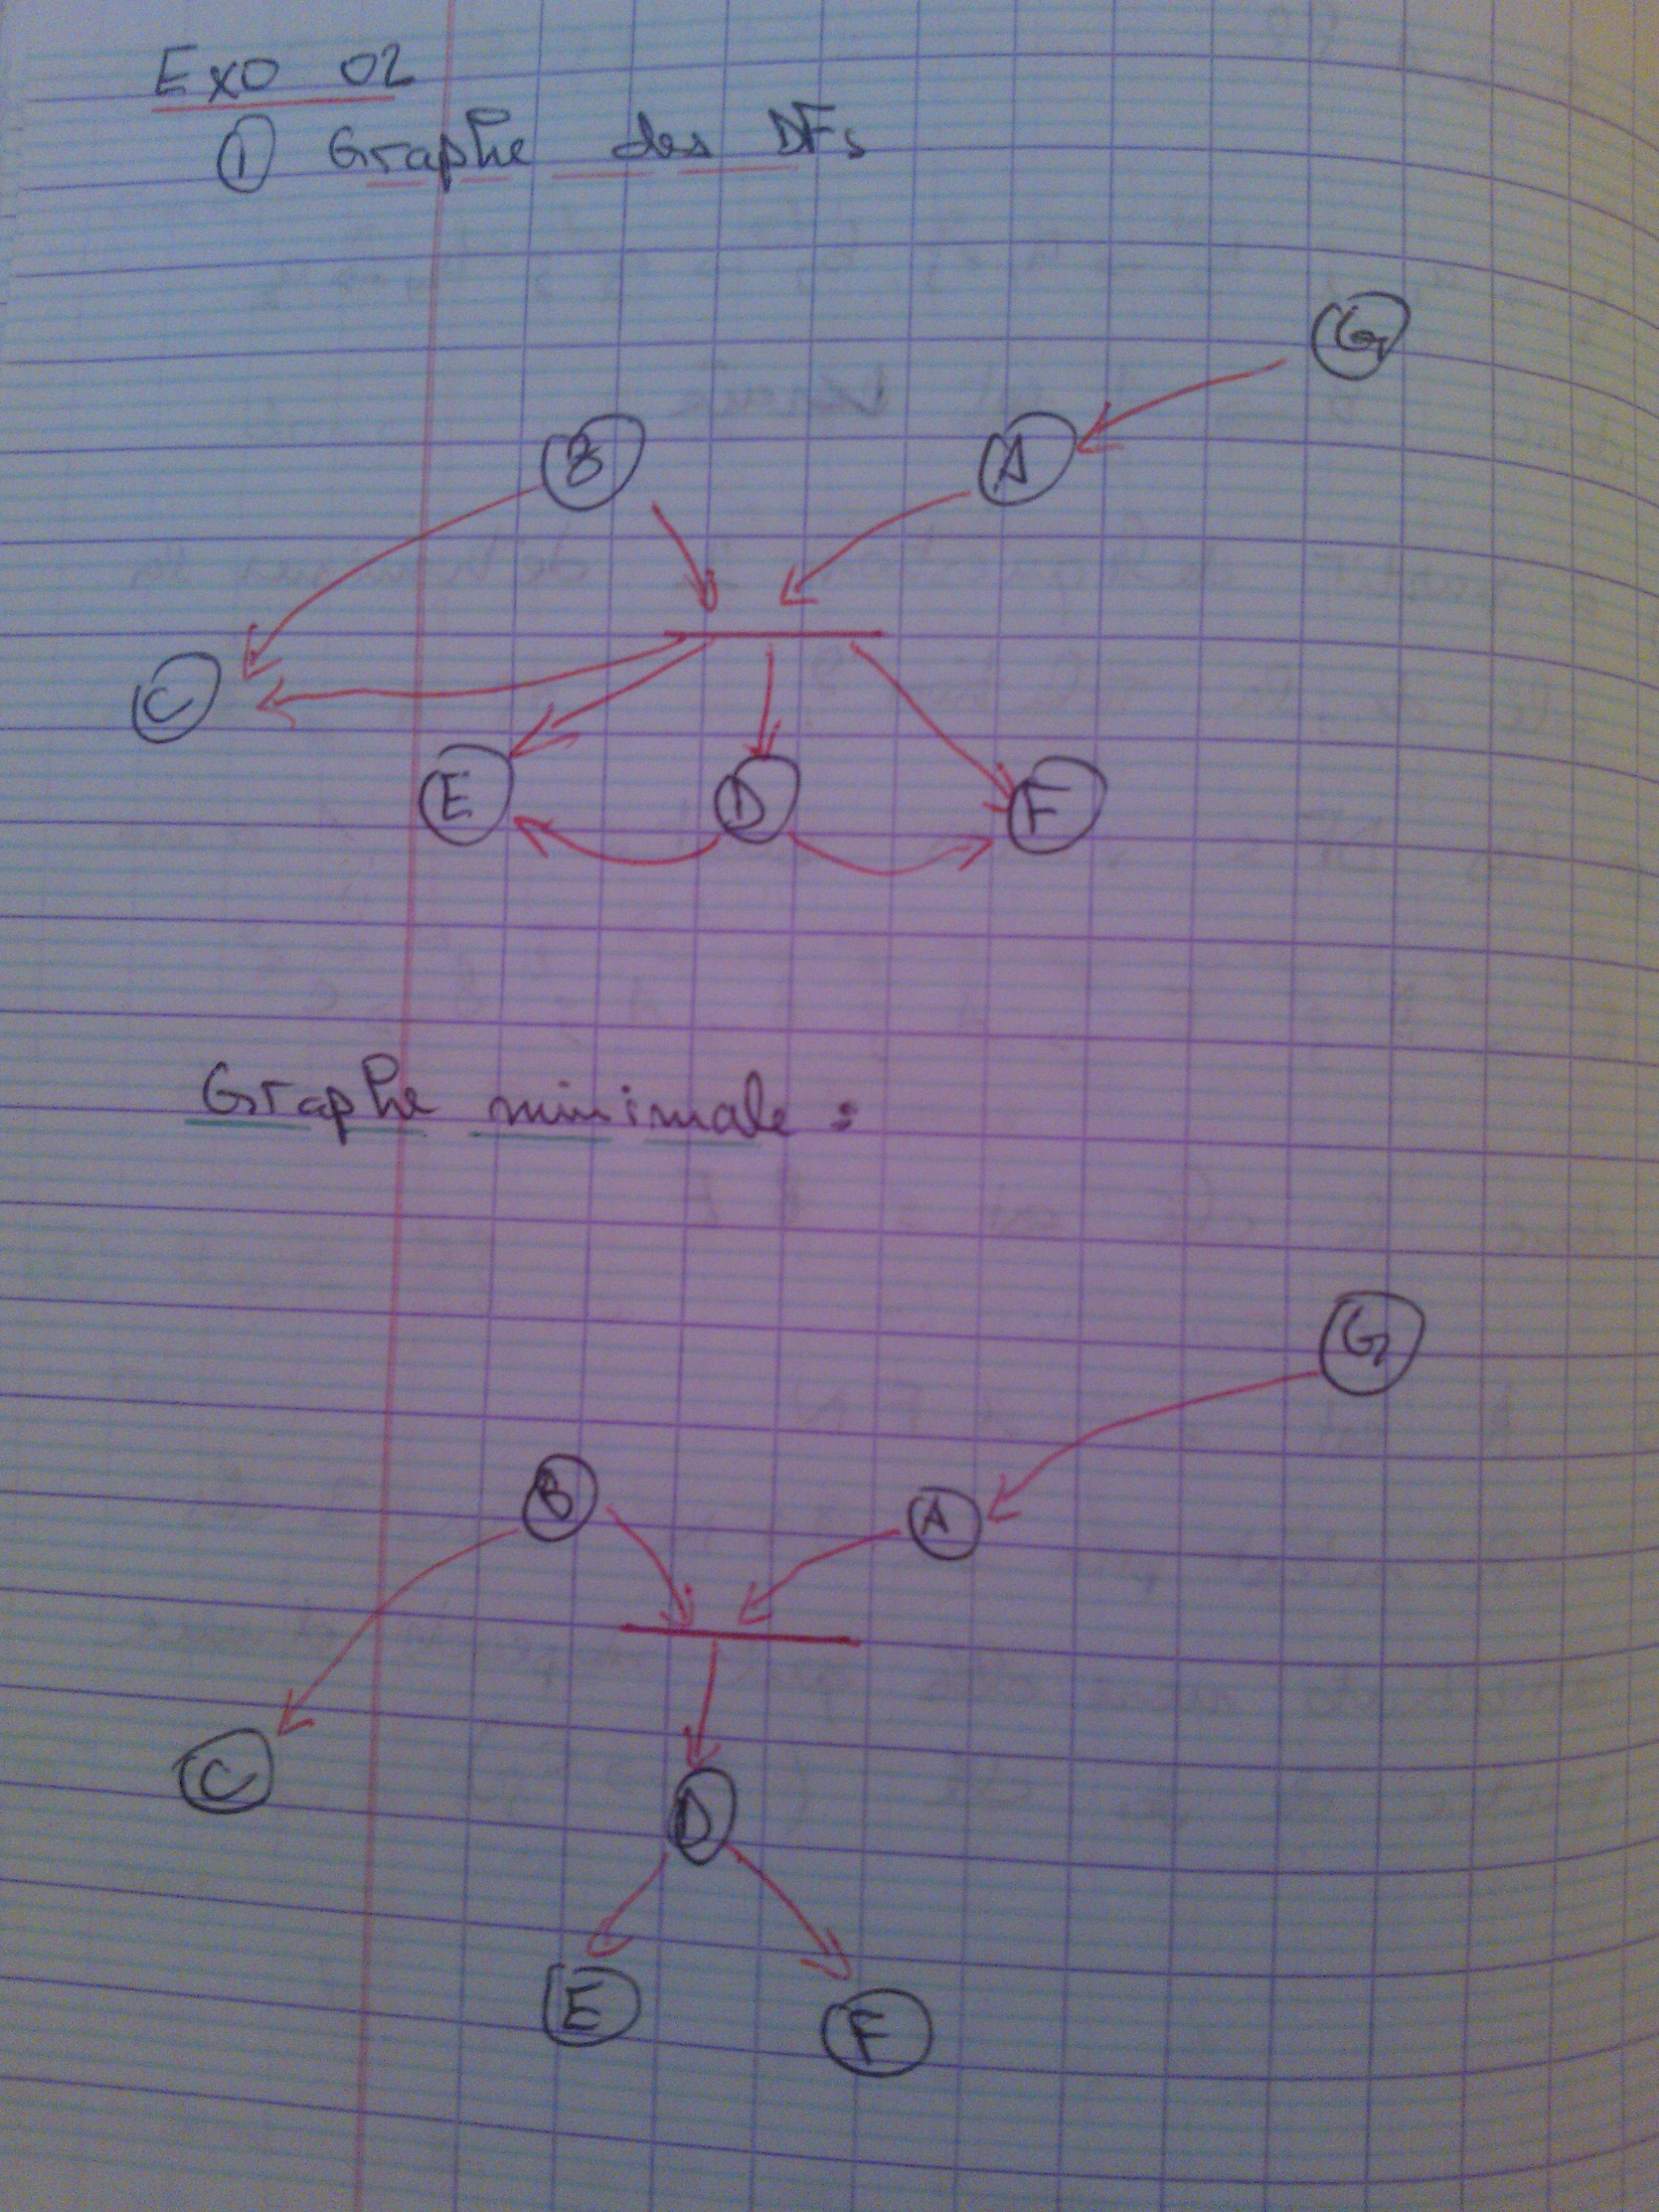 Exo 02
① Graphe des DFs
G
B A
C
E D F
Graphe minimale :
G
B A
C
D
E F